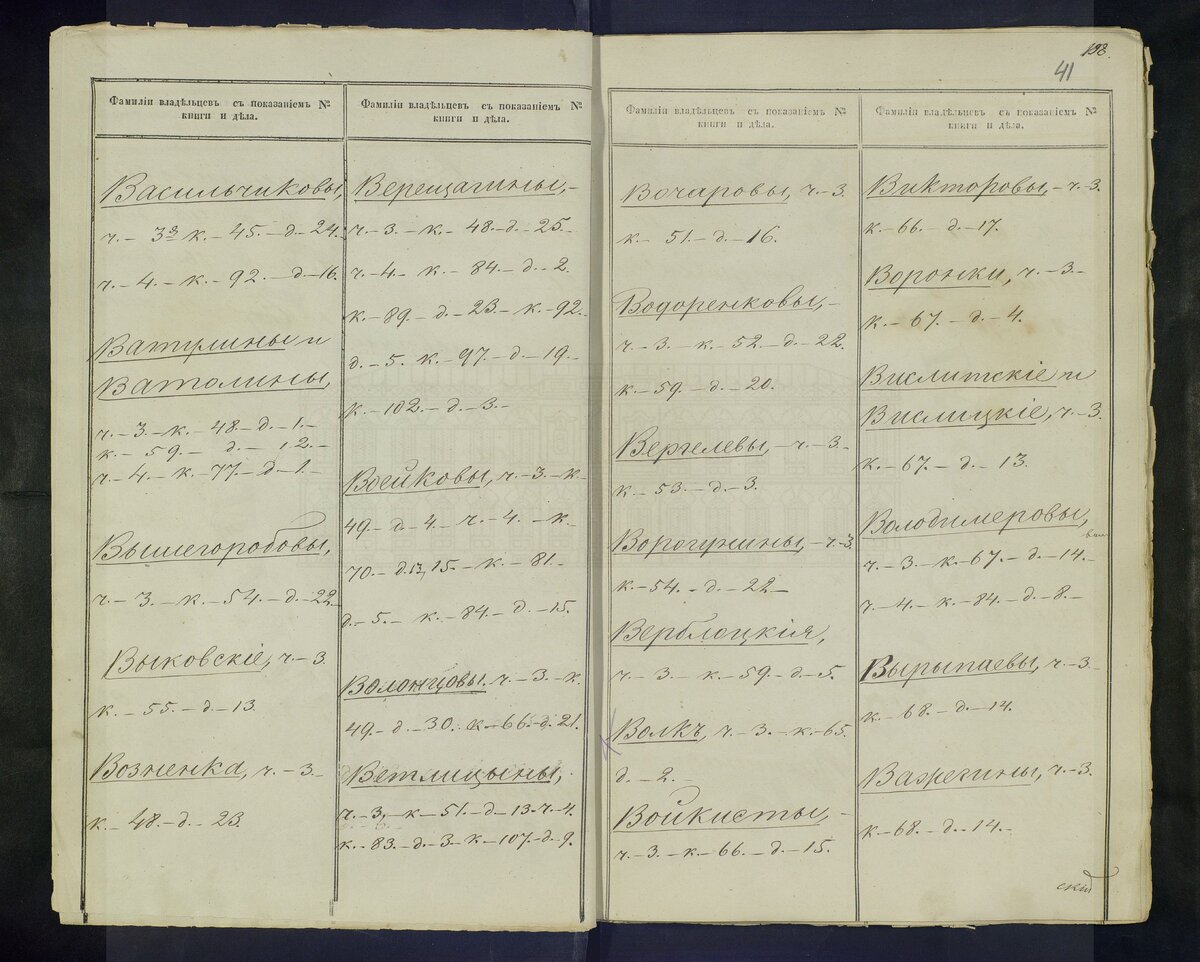 Фамиліи владѣльцев съ показаніемъ №
книги и дѣла.
Васильчиковы,
ч.- 3я к.- 45.- д.- 24.
ч.- 4.- к.- 92.- д.- 16.
Ватулины и
Ватолины,
ч.- 3.- к.- 48.- д.- 1.-
к.- 59.- д.- 12.-
ч.- 4. к.- 77.- д.- 1.-
Вышегоробовы,
ч.- 3.- к.- 54.- д.- 22.
Выковскіе, ч.- 3.
к.- 55.- д.- 13.
Возненка, ч.- 3.-
к.- 48.- д.- 23.
Фамиліи владѣльцев съ показаніемъ №
книги и дѣла.
Верещагины,-
ч.- 3.- к.- 48.- д.- 25.-
ч.- 4.- к.- 84.- д.- 2.
к.- 89.- д.- 23.- к.- 92.-
д.- 5. к.- 97.- д.- 19.-
к.- 102.- д.- 3.-
Воейковы, ч.- 3.- к.-
49.- д.- 4.- ч.- 4.- к.-
70.- д. 13, 15.- к.- 81.-
д.- 5.- к.- 84.- д.- 15.
Волонцовы. ч.- 3.- к.
49.- д.- 30. к.- 66.- д. 21.
Ветлицыны,
ч.- 3,- к.- 51.- д.- 13. ч.- 4.
к.- 83.- д.- 3. к.- 107.- д.- 9.
198.
41
Фамиліи владѣльцевъ съ показаніемъ №
книги и дѣла.
Вочаровы, ч.- 3.
к.- 51.- д.- 16.
Водоренковы,-
ч.- 3.- к.- 52.- д.- 22.
к.- 59.- д.- 20.
Вергелевы,- ч.- 3.-
к.- 53.- д.- 3.
Ворогунины,- ч.- 3.
к.- 54.- д.- 22.-
Верблоцкія,
ч.- 3.- к.- 59.- д.- 5.
Волкъ, ч.- 3.- к.- 65.
д.- 2.-
Войкисты,-
ч.- 3.- к.- 66.- д.- 15.
Фамиліи владѣльцевъ съ показаніемъ №
книги и дѣла.
Викторовы,- ч.- 3.
к.- 66.- д.- 17.
Воронки, ч.- 3.-
к.- 67.- д.- 4.
Вислитскіе и
Вислицкіе, ч.- 3.
к.- 67.- д.- 13.
Володимеровы,
ч.- 3.- к.- 67.- д.- 14.-
ч.- 4.- к.- 84.- д.- 8.-
Вырыпаевы, ч.- 3.-
к.- 68.- д.- 14.
Важегины, ч.- 3.
к.- 68.- д.- 14.-